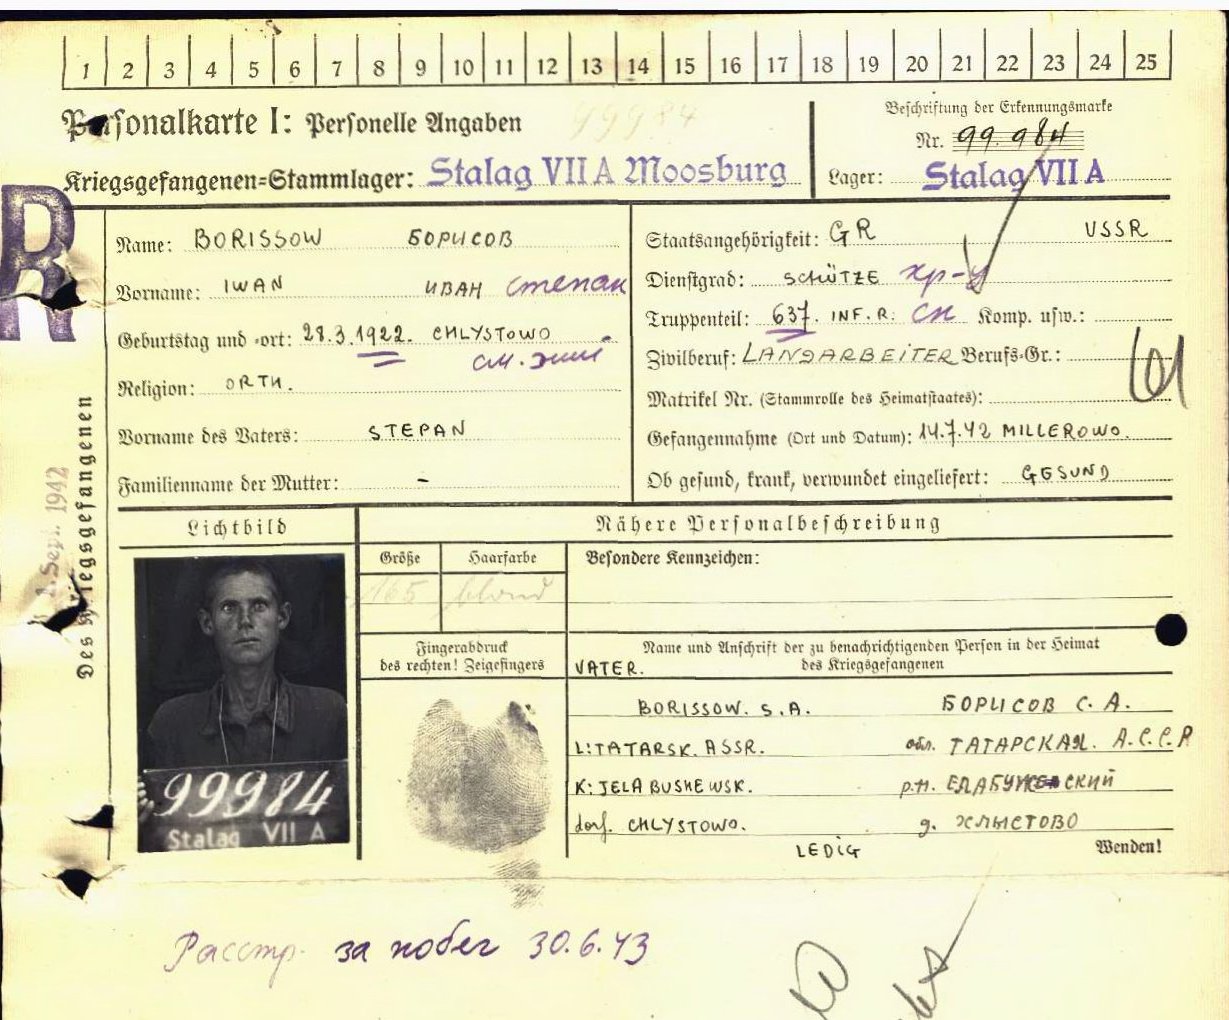 1 2 3 4 5 6 7 8 9 10 11 12 13 14 15 16 17 18 19 20 21 22 23 24 25
Personalkarte I: Personelle Angaben
99984
Beschriftung der Erkennungsmarke
Nr. 99 984
Kriegsgefangenen=Stammlager: Stalag VII A Moosburg
Lager: Stalag VII A
R
Des Kriegsgefangenen
1. Sept. 1942
Name: BORISSOW БОРИСОВ
Vorname: IWAN ИВАН Степан
Geburtstag und =ort: 28.3.1922. CHLYSTOWO
Religion: ORTH.
Vorname des Vaters: STEPAN
Familienname der Mutter: -
Staatsangehörigkeit: GR USSR
Dienstgrad: SCHÜTZE кр-ц
Truppenteil: 637. INF. R. СП Komp. usw.:
Zivilberuf: LANDARBEITER Berufs=Gr.:
Matrikel Nr. (Stammrolle des Heimatstaates):
Gefangennahme (Ort und Datum): 14.7.42 MILLEROWO.
Ob gesund, krank, verwundet eingeliefert: GESUND
Lichtbild
99984
Stalag VII A
Nähere Personalbeschreibung
Größe
165
Haarfarbe
blond
Besondere Kennzeichen:
Fingerabdruck
des rechten! Zeigefingers
Name und Anschrift der zu benachrichtigenden Person in der Heimat
des Kriegsgefangenen
VATER.
BORISSOW. S. A. БОРИСОВ С. А.
L: TATARSK. ASSR. обл. ТАТАРСКАЯ. А.С.С.Р
K: JELABUSHEWSK. р.н. ЕЛАБУЖЕВСКИЙ
dorf. CHLYSTOWO. д. ХЛЫСТОВО
LEDIG
Wenden!
Расстр. за побег 30.6.43